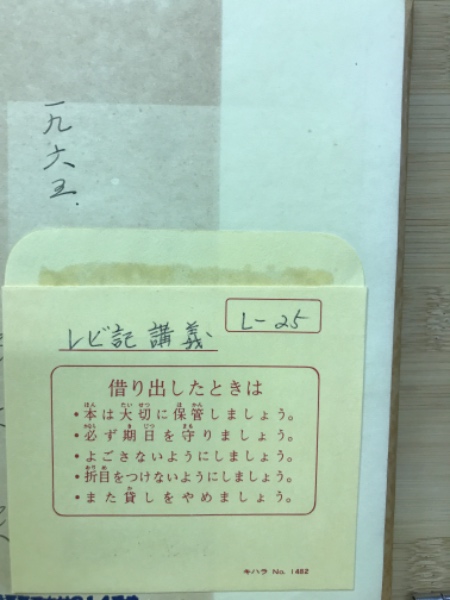 一九六五.
L-25
レビ記講義
借り出したときは
・本は大切に保管しましょう。
・必ず期日を守りましょう。
・よごさないようにしましょう。
・折目をつけないようにしましょう。
・また貸しをやめましょう。
キハラ No. 1482